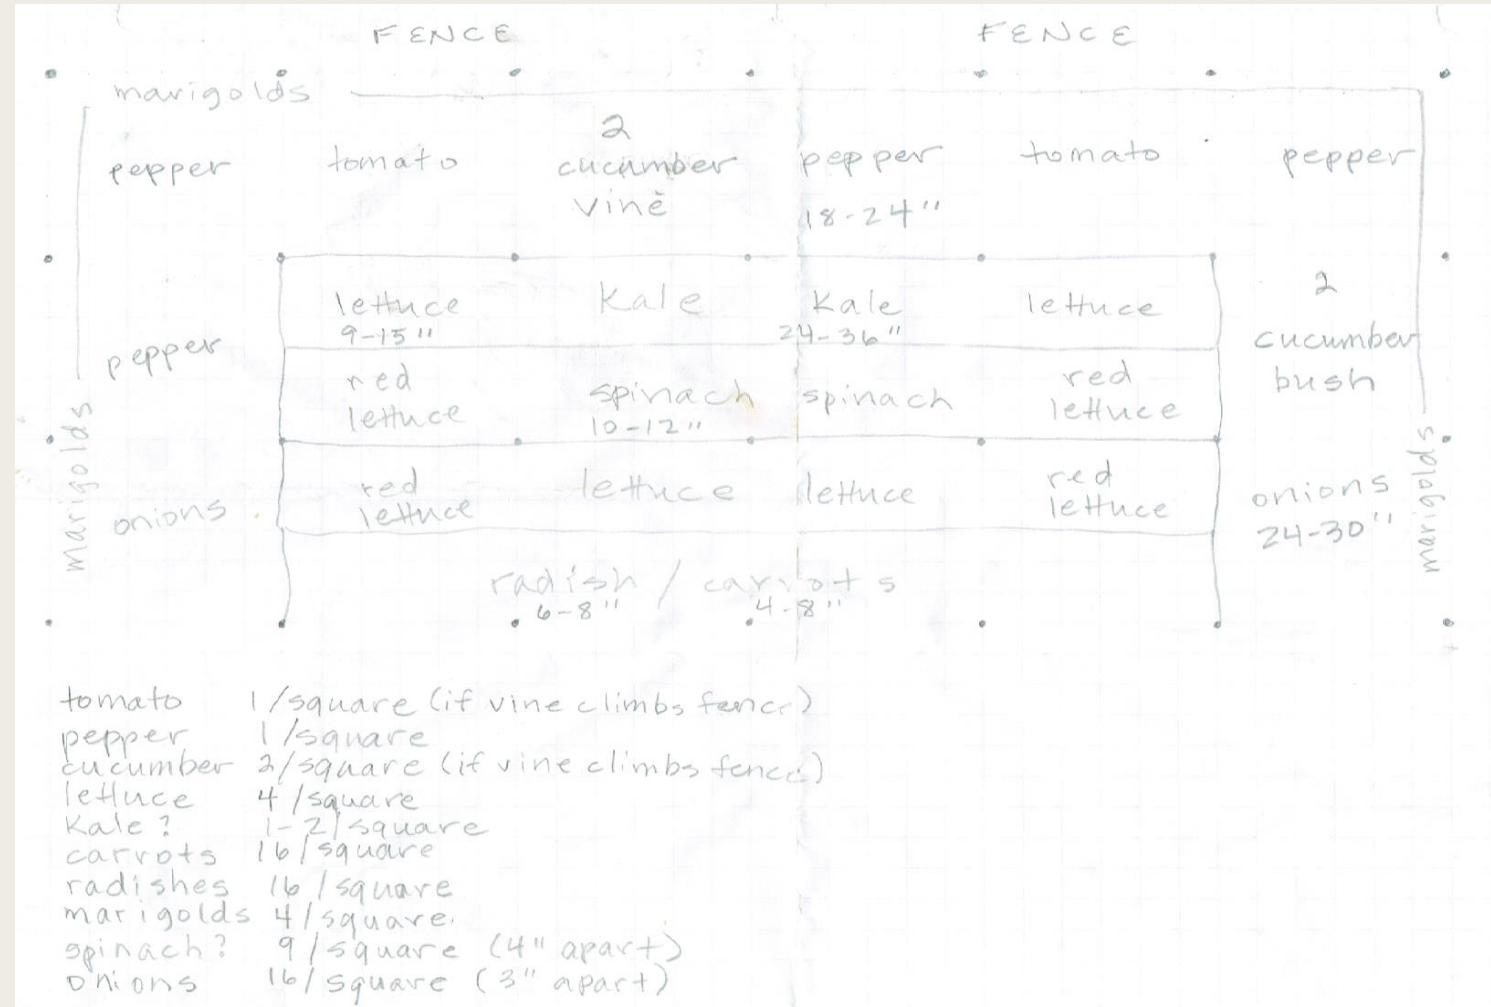 FENCE FENCE
marigolds
pepper tomato 2 cucumber vine pepper 18-24" tomato pepper
lettuce 9-15" Kale Kale 24-36" lettuce
pepper
2 cucumber bush
red lettuce spinach 10-12" spinach red lettuce
marigolds
onions
red lettuce lettuce lettuce red lettuce
onions 24-30"
marigolds
radish / carrots
6-8" 4-8"
tomato 1/square (if vine climbs fence)
pepper 1/square
cucumber 2/square (if vine climbs fence)
lettuce 4/square
Kale? 1-2/square
carrots 16/square
radishes 16/square
marigolds 4/square.
spinach? 9/square (4" apart)
onions 16/square (3" apart)